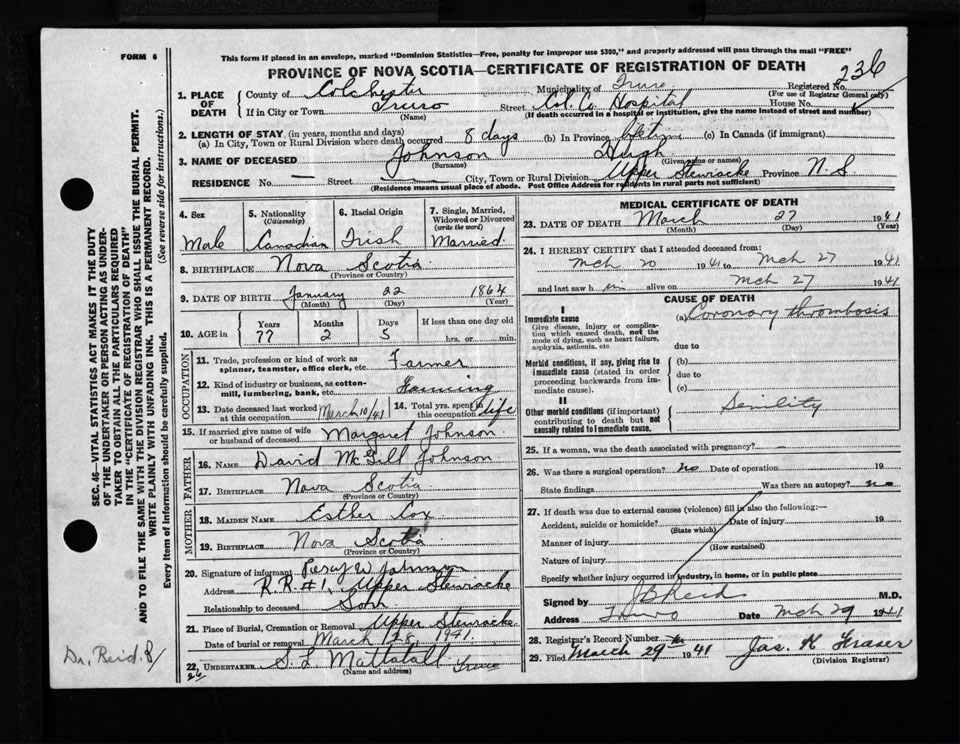 FORM 6
This form if placed in an envelope, marked "Dominion Statistics—Free, penalty for improper use $300," and properly addressed will pass through the mail "FREE"
PROVINCE OF NOVA SCOTIA—CERTIFICATE OF REGISTRATION OF DEATH
236
1. PLACE OF DEATH
County of Colchester Municipality of Truro Registered No.
(For use of Registrar General only)
If in City or Town Truro Street Col. Co. Hospital House No.
(Name) (If death occurred in a hospital or institution, give the name instead of street and number)
2. LENGTH OF STAY (in years, months and days)
(a) In City, Town or Rural Division where death occurred 8 days (b) In Province lifetime (c) In Canada (if immigrant)
3. NAME OF DECEASED Johnson Hugh
(Surname) (Given name or names)
RESIDENCE No. — Street — City, Town or Rural Division Upper Stewiacke Province N. S
(Residence means usual place of abode. Post Office Address for residents in rural parts not sufficient)
4. Sex Male
5. Nationality (Citizenship) Canadian
6. Racial Origin Irish
7. Single, Married, Widowed or Divorced (write the word) Married
8. BIRTHPLACE Nova Scotia
(Province or Country)
9. DATE OF BIRTH January 22 1864
(Month) (Day) (Year)
10. AGE in Years 77 Months 2 Days 5 If less than one day old hrs. or min.
OCCUPATION
11. Trade, profession or kind of work as spinner, teamster, office clerk, etc. Farmer
12. Kind of industry or business, as cotton-mill, lumbering, bank, etc. Farming
13. Date deceased last worked at this occupation March 10/41
14. Total yrs. spent in this occupation life
15. If married give name of wife or husband of deceased Margaret Johnson
FATHER
16. NAME David McGill Johnson
17. BIRTHPLACE Nova Scotia
(Province or Country)
MOTHER
18. MAIDEN NAME Esther Cox
19. BIRTHPLACE Nova Scotia
(Province or Country)
20. Signature of informant Percy W Johnson
Address R.R. #1, Upper Stewiacke
Relationship to deceased Son
21. Place of Burial, Cremation or Removal Upper Stewiacke
Date of burial or removal March 1941.
22. UNDERTAKER S. L Mattatall Truro
(Name and address)
MEDICAL CERTIFICATE OF DEATH
23. DATE OF DEATH March 27 1941
(Month) (Day) (Year)
24. I HEREBY CERTIFY that I attended deceased from:
Mch 20 1941 to Mch 27 1941
and last saw h im alive on Mch 27 1941
CAUSE OF DEATH
I
Immediate cause
Give disease, injury or complication which caused death, not the mode of dying, such as heart failure, asphyxia, asthenia, etc.
(a) Coronary thrombosis
due to
Morbid conditions, if any, giving rise to immediate cause (stated in order proceeding backwards from immediate cause).
(b)
due to
(c)
II
Other morbid conditions (if important) contributing to death but not causally related to immediate cause.
Senility
25. If a woman, was the death associated with pregnancy? —
26. Was there a surgical operation? no Date of operation 19
State findings Was there an autopsy? no
27. If death was due to external causes (violence) fill in also the following:—
Accident, suicide or homicide? Date of injury 19
(State which)
Manner of injury
(How sustained)
Nature of injury
Specify whether injury occurred in industry, in home, or in public place
Signed by J B Reid M.D.
Address Truro Date Mch 29 1941
28. Registrar's Record Number
29. Filed March 29th 1941 Jas. K Fraser
(Division Registrar)
SEC. 46—VITAL STATISTICS ACT MAKES IT THE DUTY
OF THE UNDERTAKER OR PERSON ACTING AS UNDER-
TAKER TO OBTAIN ALL THE PARTICULARS REQUIRED
IN THE "CERTIFICATE OF REGISTRATION OF DEATH"
AND TO FILE THE SAME WITH THE DIVISION REGISTRAR WHO SHALL ISSUE THE BURIAL PERMIT.
WRITE PLAINLY WITH UNFADING INK. THIS IS A PERMANENT RECORD.
Every item of information should be carefully supplied. (See reverse side for instructions.)
Dr. Reid 8/